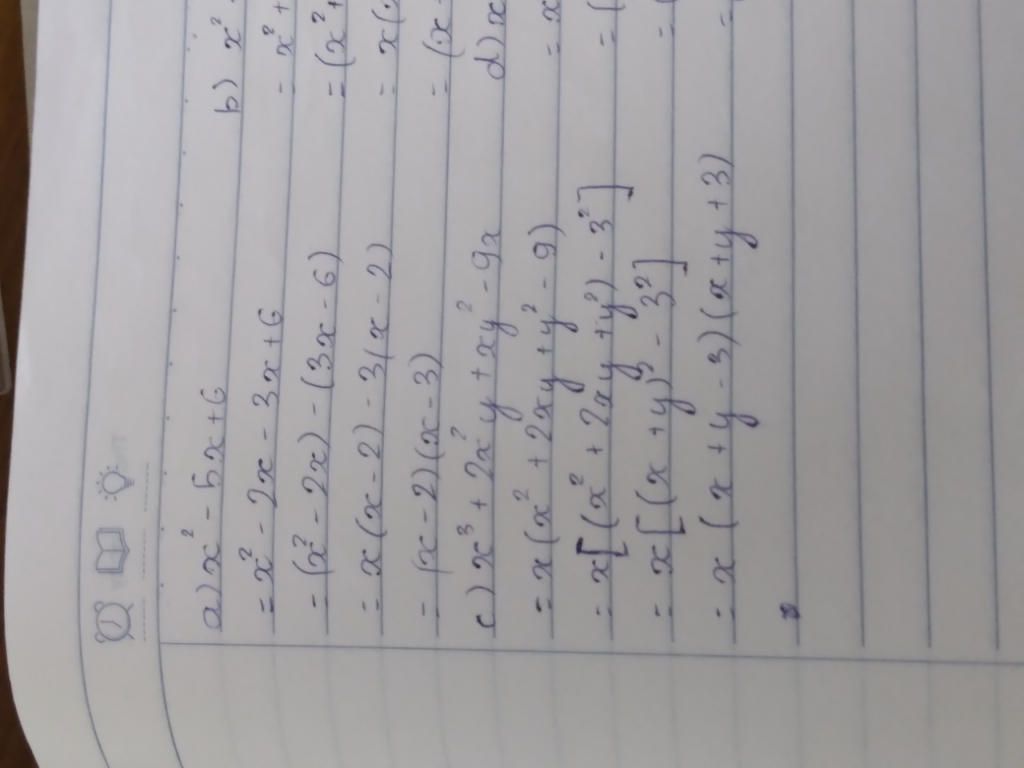 a) x² - 5x + 6
= x² - 2x - 3x + 6
= (x² - 2x) - (3x - 6)
= x(x - 2) - 3(x - 2)
= (x - 2)(x - 3)
c) x³ + 2x²y + xy² - 9x
= x(x² + 2xy + y² - 9)
= x[(x² + 2xy + y²) - 3²]
= x[(x + y)² - 3²]
= x(x + y - 3)(x + y + 3)
b) x²
= x² +
= (x² +
= x(
= (x
d) x
= x
= (
= (
=